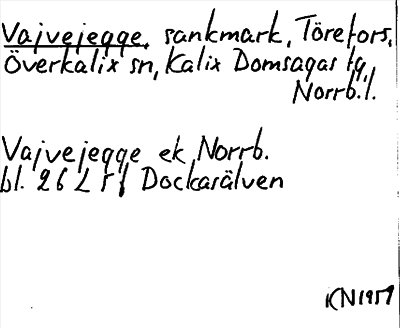 Vajvejegge, sankmark, Törefors,
Överkalix sn, Kalix Domsagas tg,
Norrb.l.
Vajvejegge ek Norrb.
bl. 26 L sf Dockasälven
KN 1959